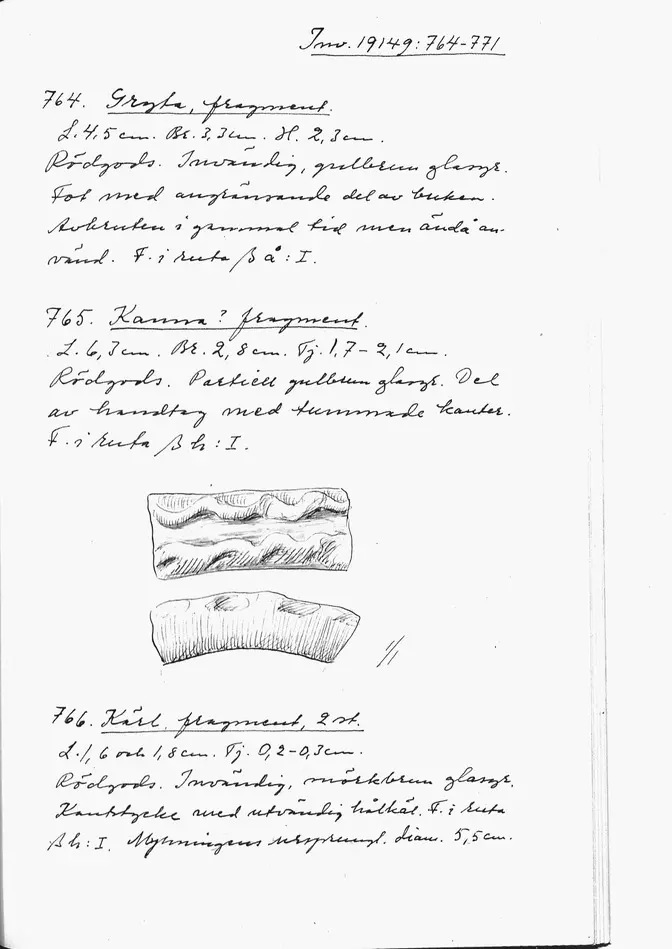 Inv. 19149:764-771
764. Gryta, fragment.
L. 4,5 cm. Br. 3,3 cm. H. 2,3 cm.
Rödgods. Invändig, gulbrun glasyr.
Fot med angränsande del av buken.
Avbruten i gammal tid men ändå an-
vänd. F. i ruta β å : I.
765. Kanna? fragment.
L. 6,3 cm. Br. 2,8 cm. Tj. 1,7-2,1 cm.
Rödgods. Partiell gulbrun glasyr. Del
av handtag med tummade kanter.
F. i ruta β h : I.
1/1
766. Kärl, fragment, 2 st.
L. 1,6 och 1,8 cm. Tj. 0,2-0,3 cm.
Rödgods. Invändig, mörkbrun glasyr.
Kantstycke med utvändig hålkäl. F. i ruta
β h : I. Mynningens ursprungl. diam. 5,5 cm.